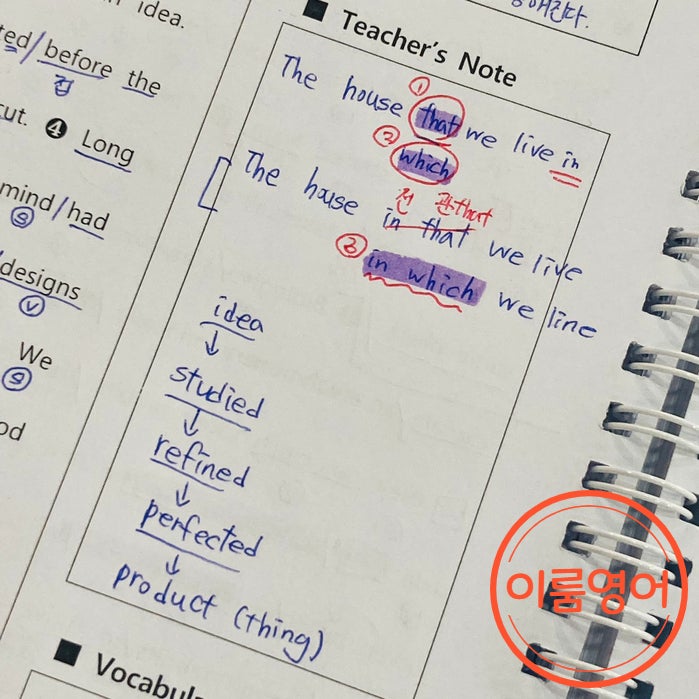 idea.
ted/before the
접
cut. ❹ Long
mind/had
ⓢ
designs
ⓥ
We
ⓢ
od
■ Teacher's Note
The house ① that we live in
② which
The house in that we live
전 관that
③ in which we line
idea
↓
studied
↓
refined
↓
perfected
↓
product (thing)
■ Vocabul
이룸영어